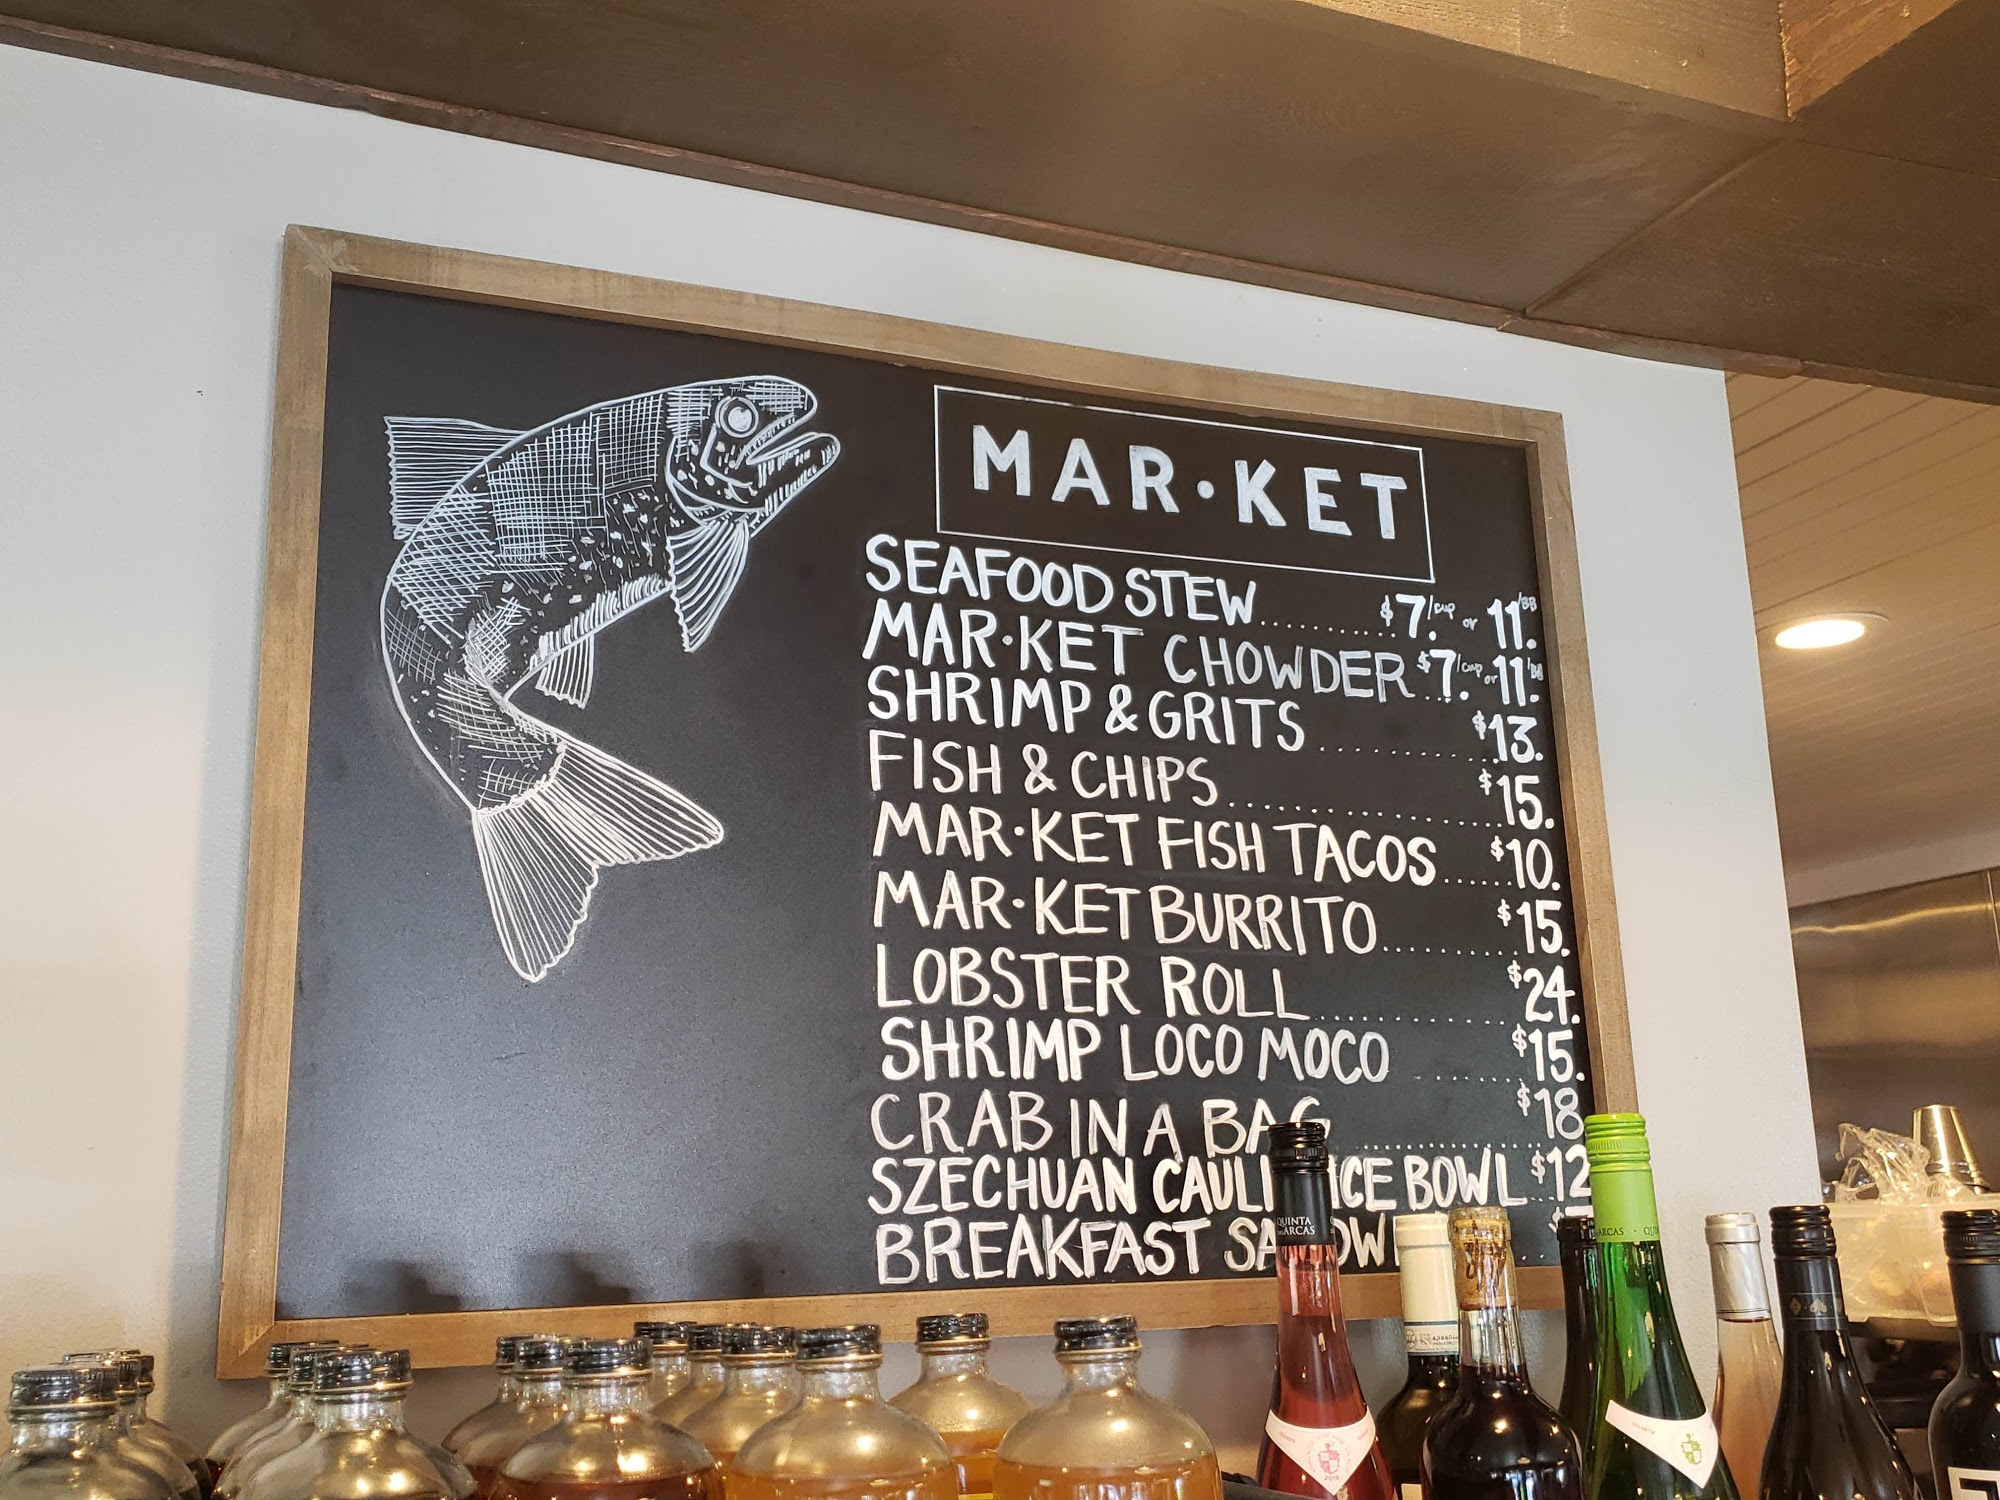 MAR·KET
SEAFOOD STEW.......... $7./cup or 11./BB
MAR·KET CHOWDER $7./cup or 11.
SHRIMP & GRITS .......... $13.
FISH & CHIPS .......... $15.
MAR·KET FISH TACOS ...... $10.
MAR·KET BURRITO ........ $15.
LOBSTER ROLL .......... $24.
SHRIMP LOCO MOCO ...... $15.
CRAB IN A BAG .......... $18
SZECHUAN CAULI ICE BOWL $12
BREAKFAST SA
QUINTA
ARCAS
ARCAS · QU
2018